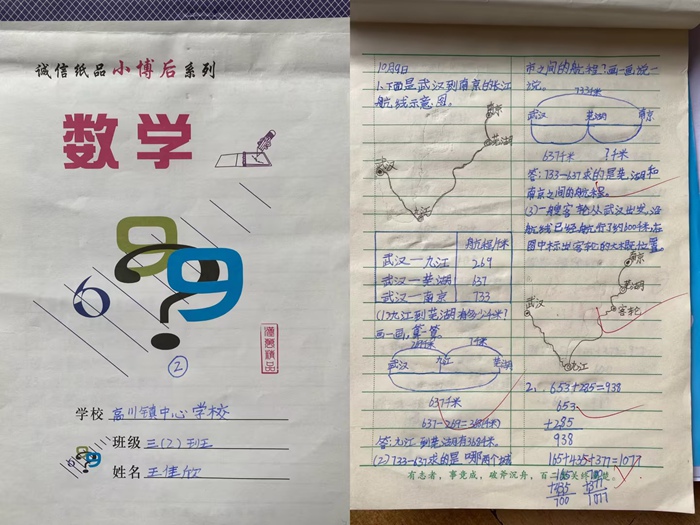 诚信纸品小博后系列
数学
6
9
9
?
②
学校 高川镇中心学校
班级 三(2)班
姓名 王佳欣
10月9日
1、下面是武汉到南京的长江
航线示意图。
南京
芜湖
武汉
九江
航程/千米
武汉—九江 269
武汉—芜湖 637
武汉—南京 733
(1)九江到芜湖有多少千米?
画一画,算一算
269千米 ?千米
武汉 九江 芜湖
637千米
637-269=368(千米)
答:九江到芜湖有368千米。
(2)733-637求的是哪两个城
市之间的航程?画一画说一
说。
733千米
武汉 芜湖 南京
637千米 ?千米
答:733-637求的是芜湖和
南京之间的航程。
(3)一艘客轮从武汉出发,沿
航线已经航行了约600千米,在
图中标出客轮的大概位置
南京
芜湖
客轮
武汉
九江
2、653+285=938
653
+285
938
165+435+377=1077
165 700
+435 +377
700 1077
有志者,事竟成,破釜沉舟,百